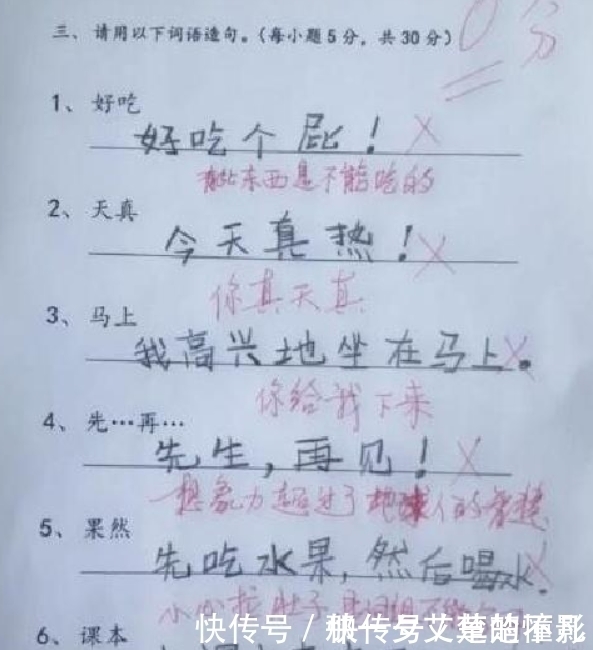 三、请用以下词语造句。(每小题5分，共30分) 0分
1、好吃
好吃个屁！
有些东西是不能吃的
2、天真
今天真热！
你真天真
3、马上
我高兴地坐在马上。
你给我下来
4、先…再…
先生，再见！
想象力超过了地球人的智慧
5、果然
先吃水果，然后喝水.
小心拉肚子
6、课本
快传号／